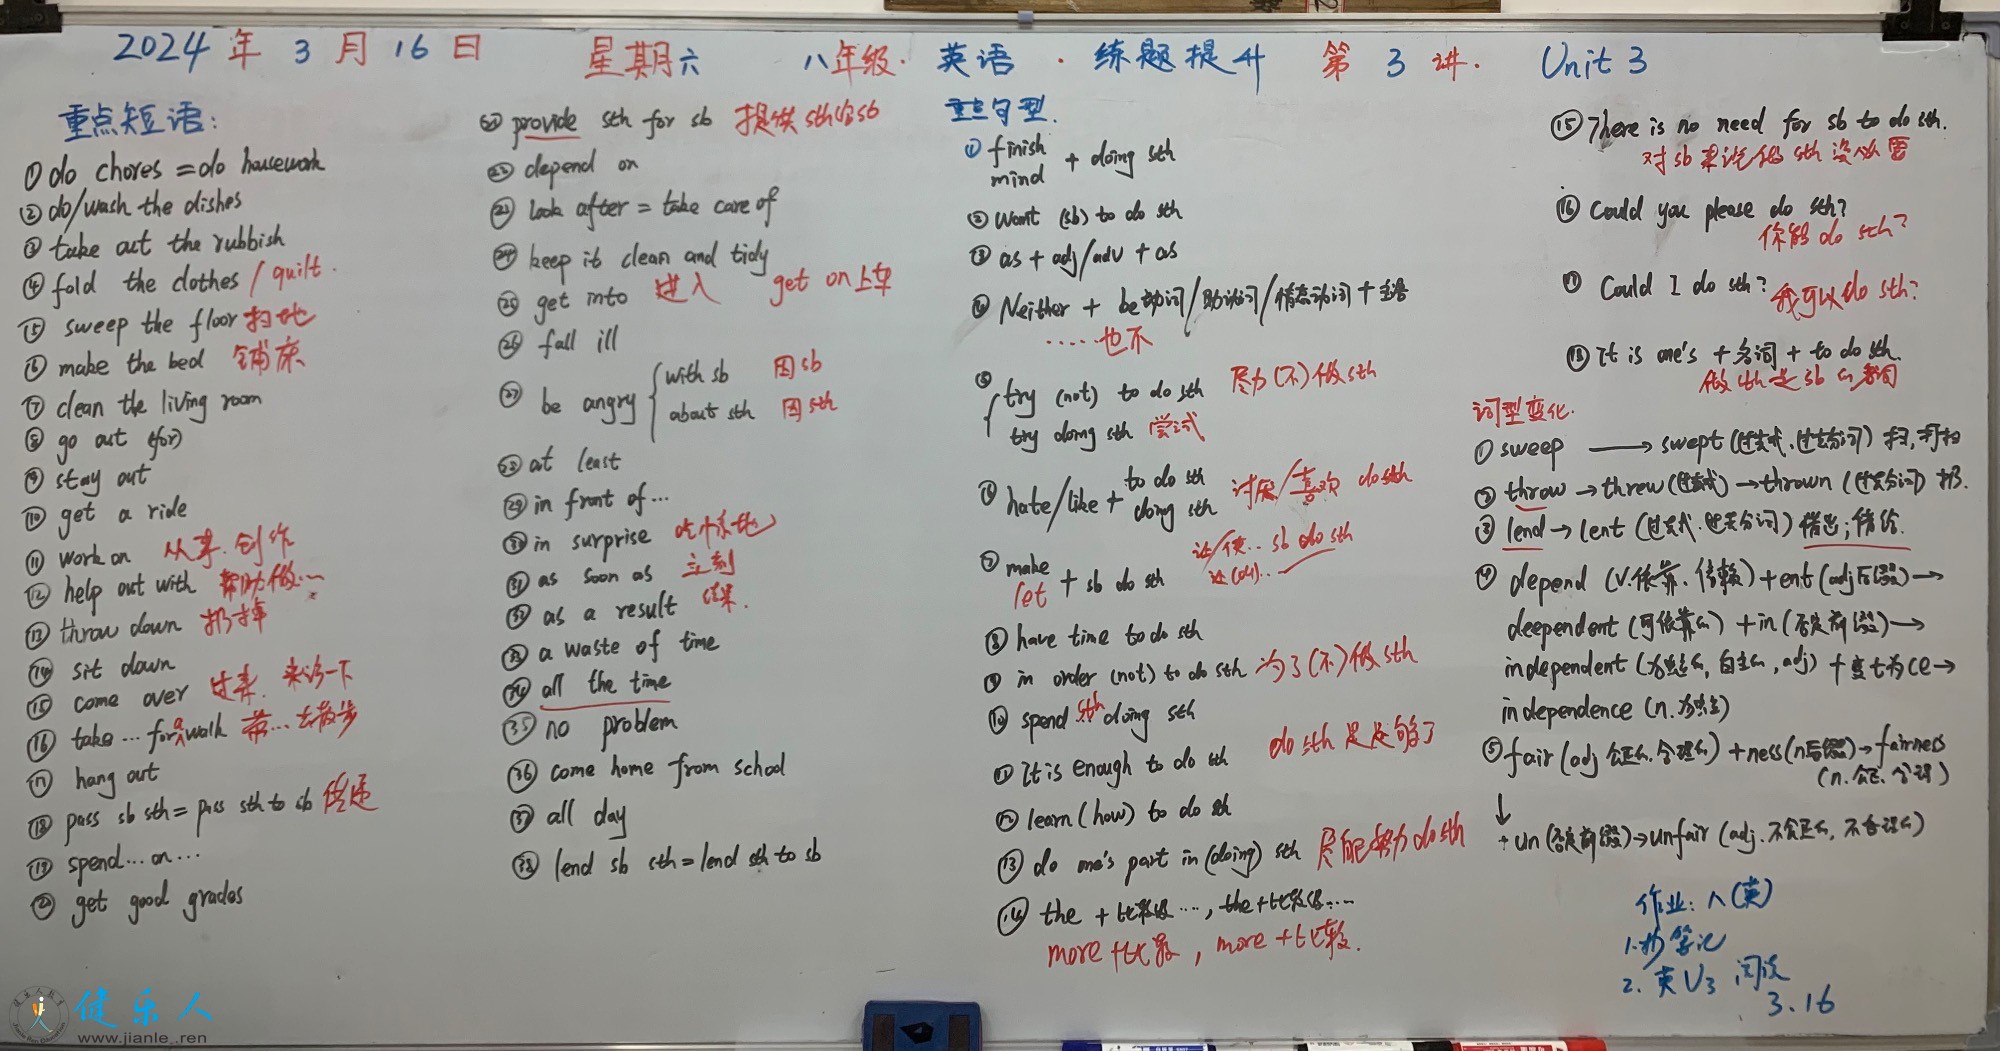 2024年3月16日 星期六 八年级·英语·练题提升 第3讲. Unit 3
重点短语:
①do chores = do housework
②do/wash the dishes
③take out the rubbish
④fold the clothes / quilt.
⑤sweep the floor 扫地
⑥make the bed 铺床
⑦clean the living room
⑧go out (for)
⑨stay out
⑩get a ride
⑪work on 从事.创作
⑫help out with 帮助做…
⑬throw down 扔掉
⑭sit down
⑮come over 过来.来访一下
⑯take … for a walk 带…去散步
⑰hang out
⑱pass sb sth = pass sth to sb 传递
⑲spend…on…
⑳get good grades
㉑provide sth for sb 提供sth给sb
㉒depend on
㉓look after = take care of
㉔keep it clean and tidy
㉕get into 进入 get on 上车
㉖fall ill
㉗be angry
with sb 因sb
about sth 因sth
㉘at least
㉙in front of…
㉚in surprise 吃惊地
㉛as soon as 立刻
㉜as a result 结果.
㉝a waste of time
㉞all the time
㉟no problem
㊱come home from school
㊲all day
㊳lend sb sth = lend sth to sb
重点句型.
①finish
mind + doing sth
②want (sb) to do sth
③as + adj/adv + as
④Neither + be动词/助动词/情态动词+主语
……也不
⑤try (not) to do sth 尽力(不)做sth
try doing sth 尝试
⑥hate/like + to do sth
doing sth 讨厌/喜欢 do sth
⑦make
let + sb do sth 让/使..sb do sth
⑧have time to do sth
⑨in order (not) to do sth 为了(不)做sth
⑩spend sth doing sth
⑪It is enough to do sth do sth 是足够了
⑫learn (how) to do sth
⑬do one's part in (doing) sth 尽能努力do sth
⑭the + 比较级…, the+比较级…
more +比较, more +比较.
⑮There is no need for sb to do sth.
对sb来说做sth没必要
⑯Could you please do sth?
你能do sth?
⑰Could I do sth? 我可以do sth?
⑱It is one's + 名词 + to do sth.
做sth是sb的名词
词型变化.
①sweep → swept (过去式.过去分词) 扫,打扫
②throw → threw (过去式) → thrown (过去分词) 扔.
③lend → lent (过去式.过去分词) 借出;借给.
④depend (v.依靠.信赖) + ent (adj后缀) →
deependent (可依靠的) + in (否定前缀) →
independent (独立的,自主的,adj) + 变t为ce →
independence (n.独立)
⑤fair (adj 公正的.合理的) + ness (n后缀) → fairness
(n.公正.合理)
↓
+ un (否定前缀) → unfair (adj.不公正的,不合理的)
作业: 八(英)
1.抄笔记
2.英U3 阅读
3.16
健乐人
www.jianle.ren